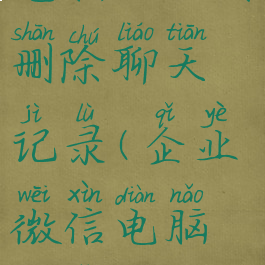 shān chú liáo tiān
删除聊天
jì lù qǐ yè
记录(企业
wēi xìn diàn nǎo
微信电脑